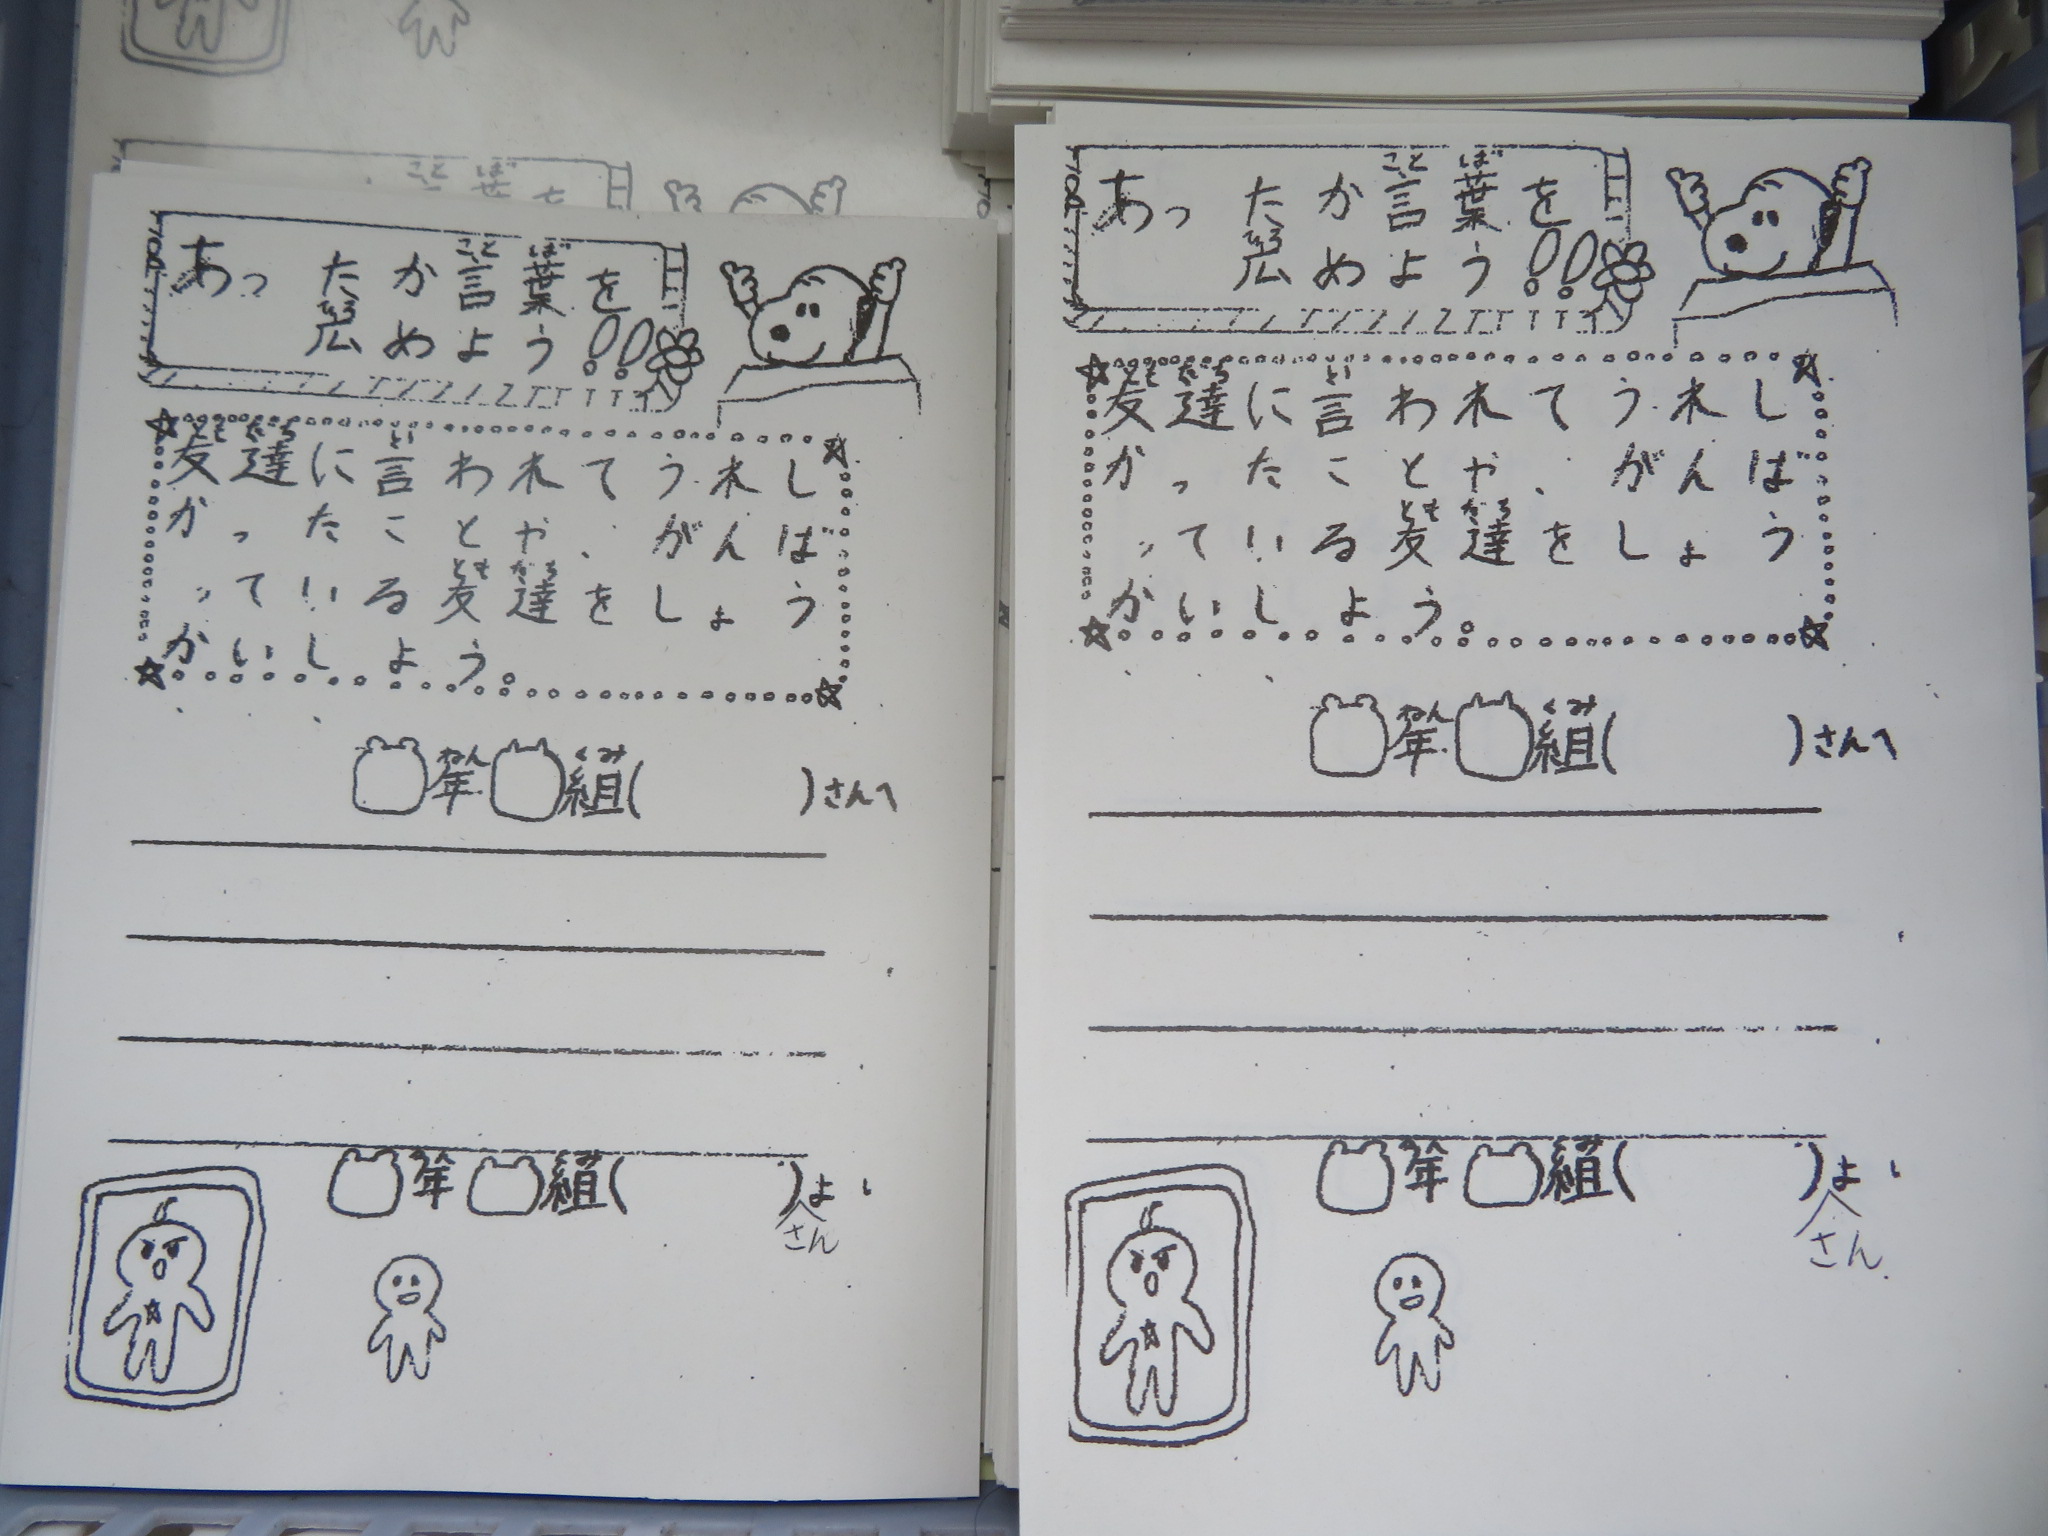 あったか言葉を
広めよう!!
友達に言われてうれし
かったことや、がんば
っている友達をしょう
かいしよう。
年 組( )さんへ
年 組( )より
さん
あったか言葉を
広めよう!!
友達に言われてうれし
かったことや、がんば
っている友達をしょう
かいしよう。
年 組( )さんへ
年 組( )よ
さん